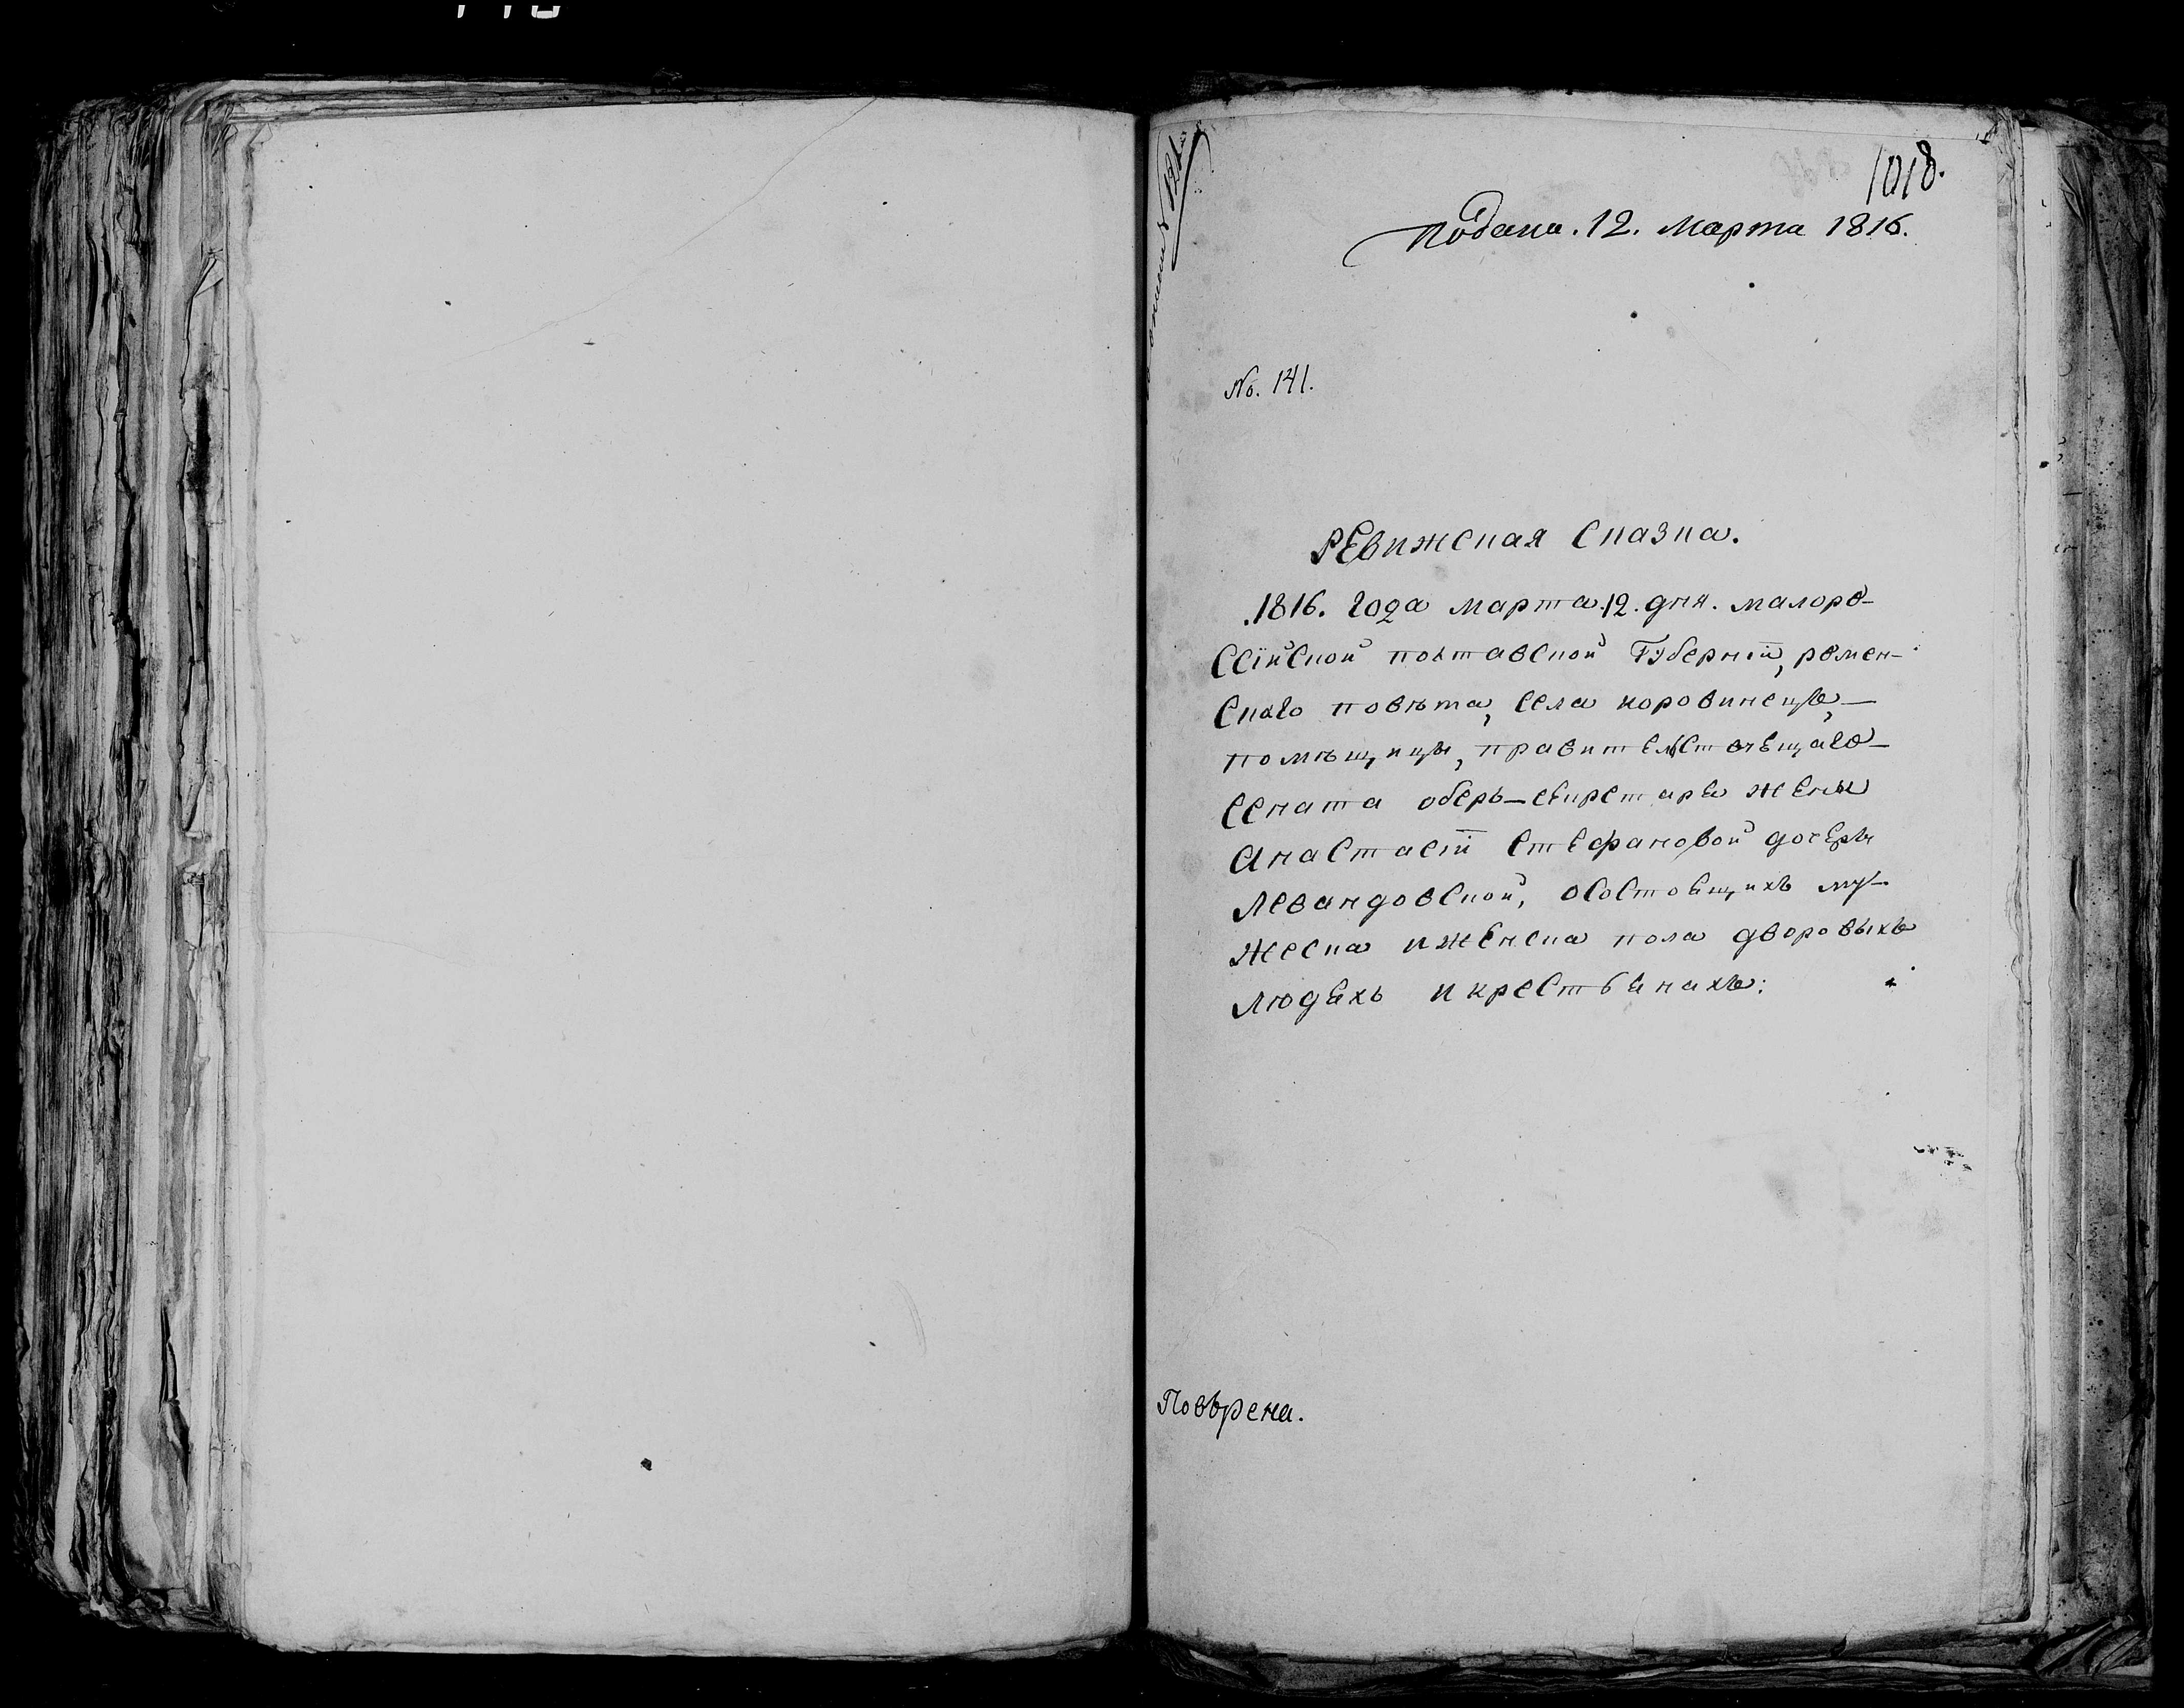 1018.
Подана. 12. Марта 1816.
No. 141.
Ревижская Сказка.
1816. года марта. 12. дня. малоро-
ссійской полтавской Губерніи, ромен-
скаго повѣта, села коровинецъ,
помѣщицы, правительствующаго
сената оберъ-секретаря жены
Анастасіи стефановой дочеры
Левандовской, осостоящихъ му-
жеска ижѣнска пола дворовыхъ
людяхъ икрестьянахъ:
Повѣрена.